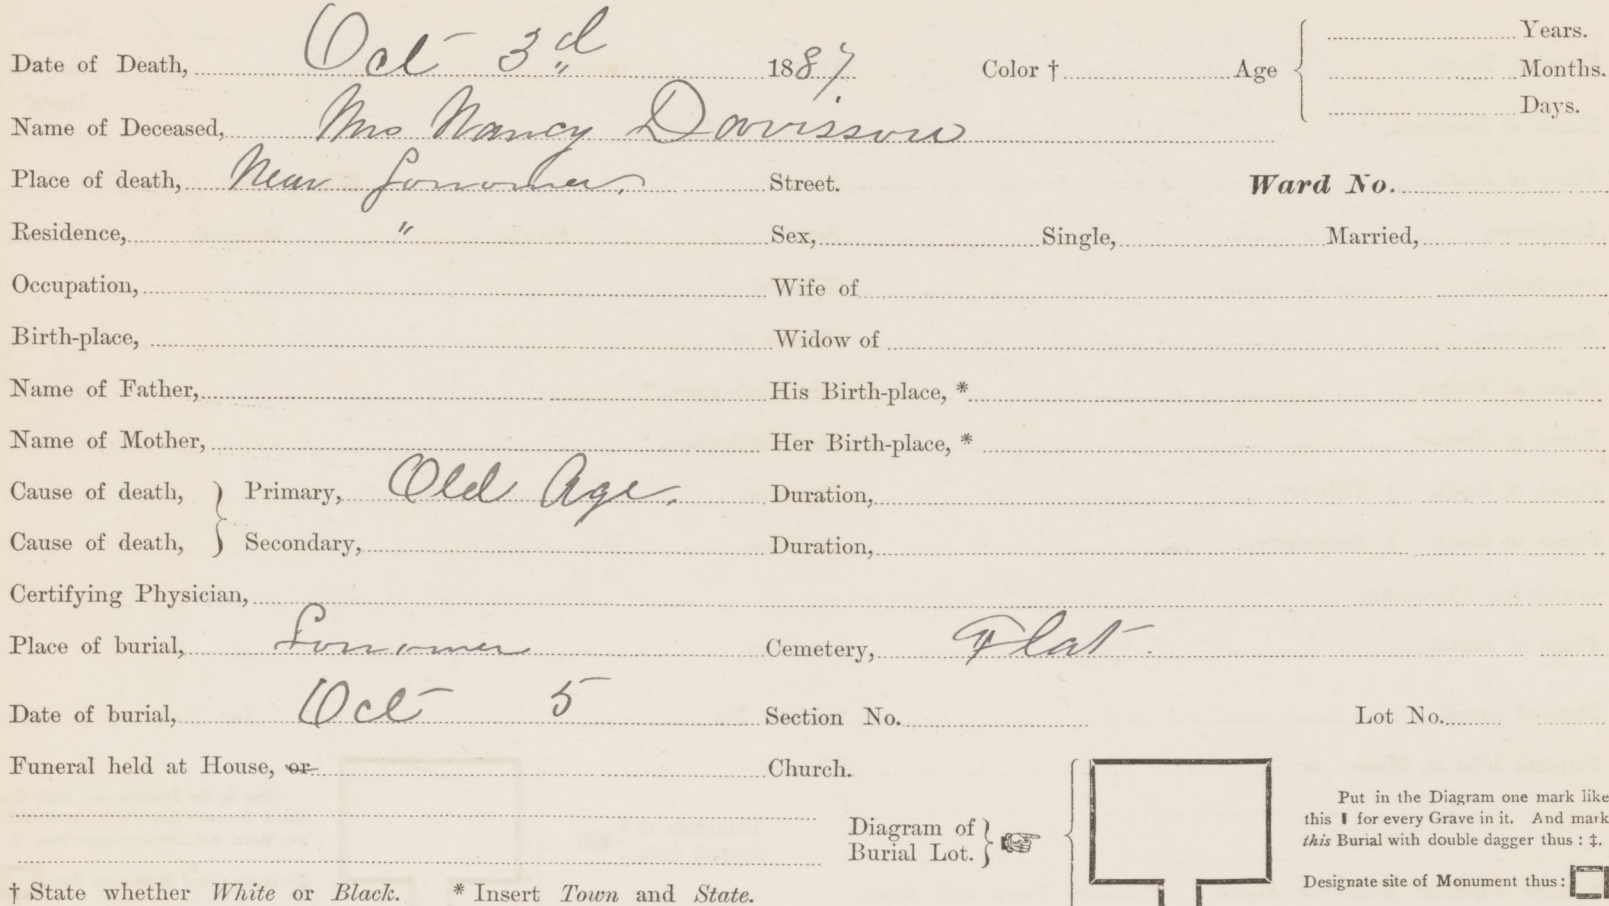 Date of Death, Oct 3d 1887 Color † Age Years.
Months.
Days.
Name of Deceased, Mrs Nancy Davisson
Place of death, Near Sonoma. Street. Ward No.
Residence, " Sex, Single, Married,
Occupation, Wife of
Birth-place, Widow of
Name of Father, His Birth-place, *
Name of Mother, Her Birth-place, *
Cause of death, Primary, Old Age. Duration,
Cause of death, Secondary, Duration,
Certifying Physician,
Place of burial, Sonoma Cemetery, Flat.
Date of burial, Oct 5 Section No. Lot No.
Funeral held at House, or Church.
Diagram of
Burial Lot.
Put in the Diagram one mark like
this ▮ for every Grave in it. And mark
this Burial with double dagger thus : ‡.
Designate site of Monument thus :
† State whether White or Black. * Insert Town and State.